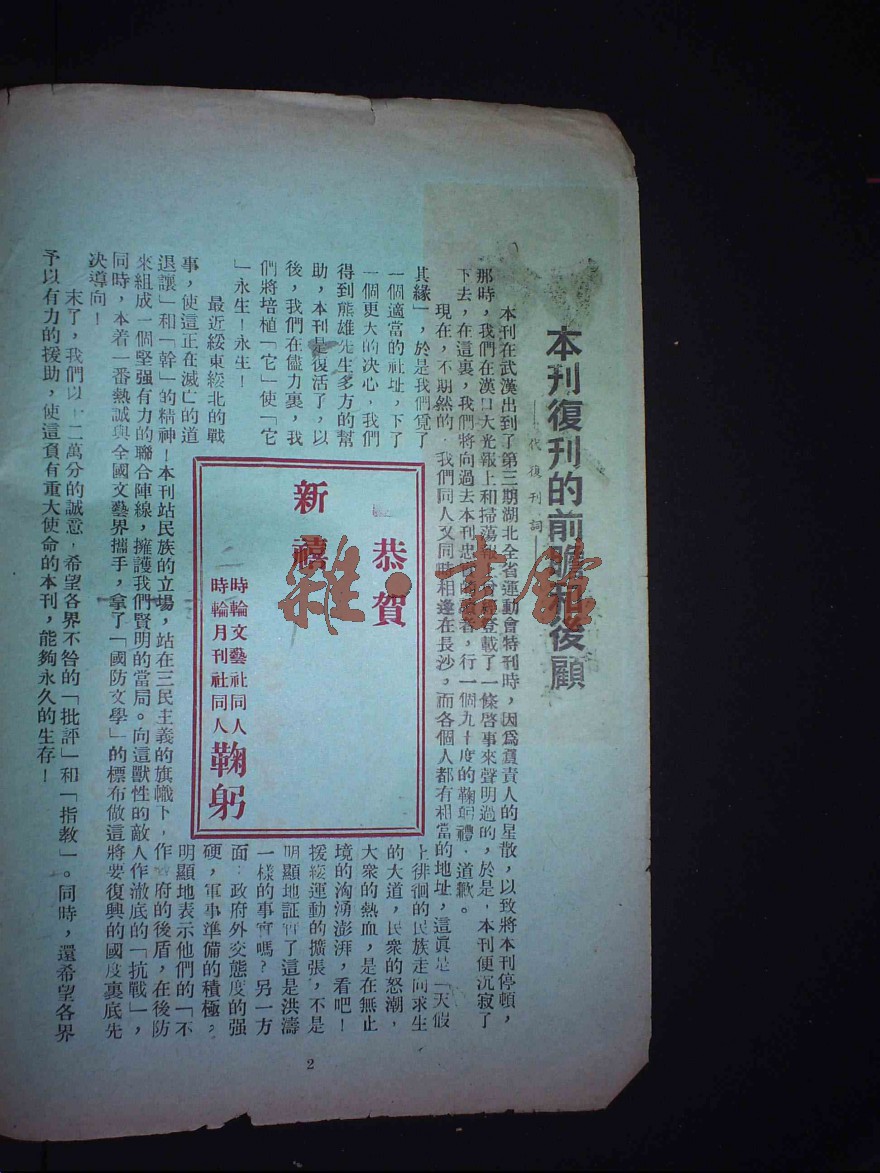 本刊復刊的前瞻和後顧
——代復刊詞——
本刊在武漢出到了第三期湖北全省運動會特刊時，因爲負責人的星散，以致將本刊停頓，
那時，我們在漢口大光報上和掃蕩報上曾經登載了一條啓事來聲明過的，於是，本刊便沉寂了
下去，在這裏，我們將向過去本刊忠實的讀者，行一個九十度的鞠躬禮，道歉。
現在，不期然的，我們同人又同時相逢在長沙，而各個人都有相當的地址，這眞是「天假
其緣」，於是我們覓了
一個適當的社址，下了
一個更大的决心，我們
得到熊雄先生多方的幫
助，本刊是復活了，以
後，我們在儘力裏，我
們將培植「它」使「它
」永生！永生！
最近綏東綏北的戰
事，使這正在滅亡的道
上徘徊的民族走向求生
的大道，民衆的怒潮，
大衆的熱血，是在無止
境的洶湧澎湃，看吧！
援綏運動的擴張，不是
明顯地証實了這是洪濤
一樣的事實嗎？另一方
面：政府外交態度的强
硬，軍事準備的積極，
明顯地表示他們的「不
退讓」和「幹」的精神！本刊站民族的立場，站在三民主義的旗幟下，作政府的後盾，在後防
來組成一個堅强有力的聯合陣線，擁護我們賢明的當局。向這獸性的敵人作澈底的「抗戰」，
同時，本着一番熱誠與全國文藝界攜手，拿了「國防文學」的標布做這將要復興的國度裏底先
决導向！
末了，我們以十二萬分的誠意，希望各界不咎的「批評」和「指教」。同時，還希望各界
予以有力的援助，使這負有重大使命的本刊，能夠永久的生存！
恭賀
新禧
時輪文藝社同人
時輪月刊社同人
鞠躬
2
雜·書館